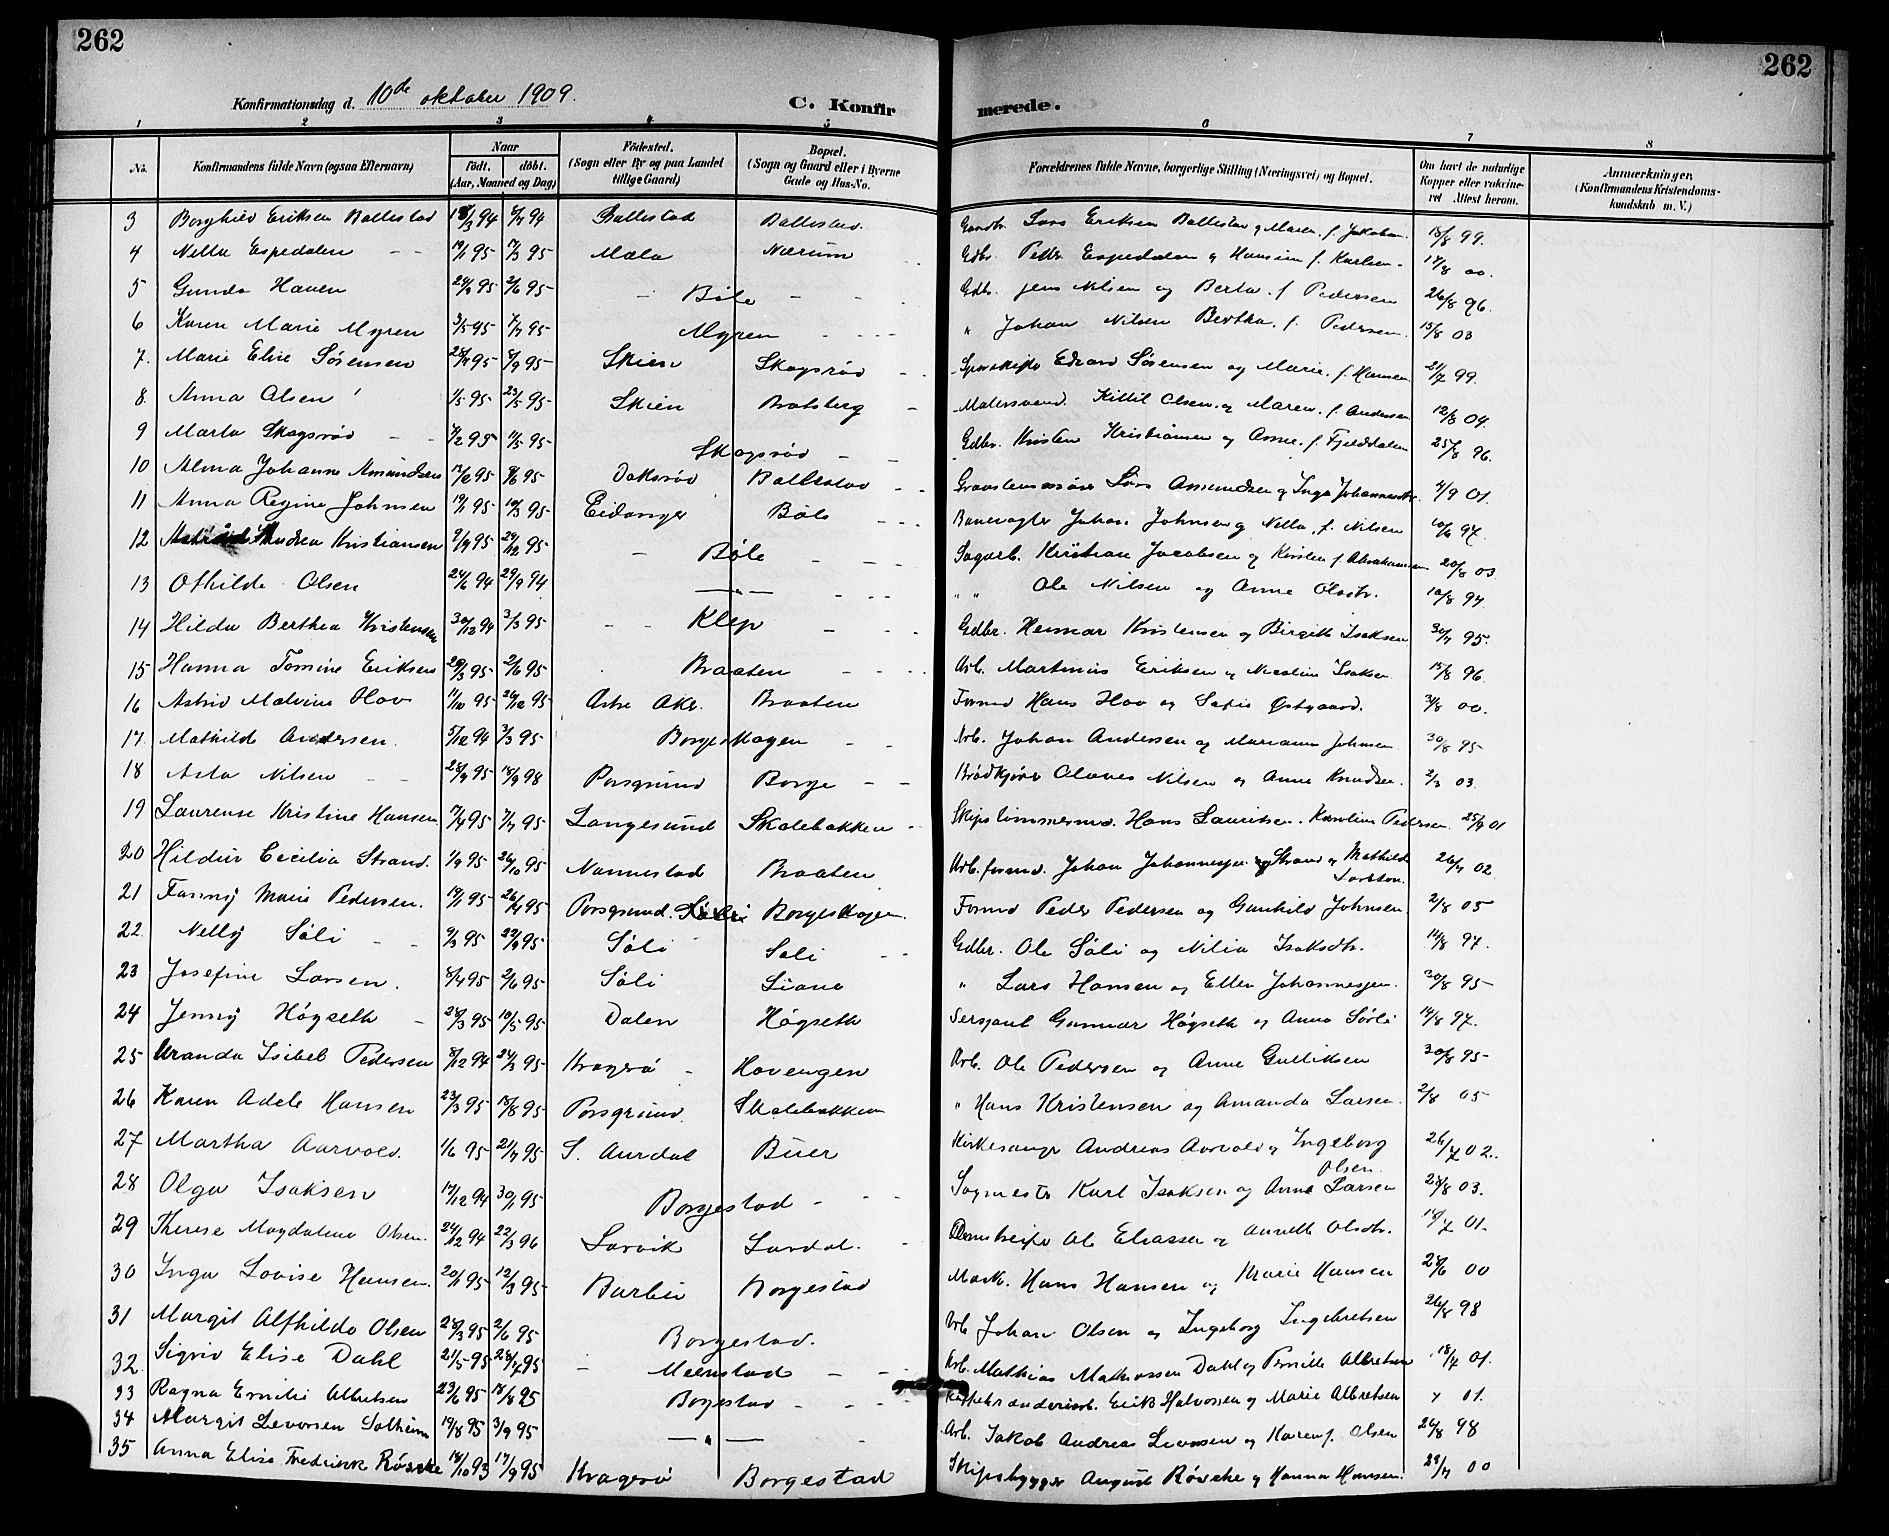 262
262
Konfirmationsdag d. 10de oktober 1909.
C. Konfir
merede.
1 2 3 4 5 6 7 8
No. Konfirmandens fulde Navn (ogsaa Efternavn) Naar Födt. döbt. (Aar, Maaned og Dag) Födested. (Sogn eller By og paa Landet tillige Gaard) Bopæl. (Sogn og Gaard eller i Byerne Gade og Hus-No. Forældrenes fulde Navne, borgerlige Stilling (Næringsvei) og Bopæl. Om havt de naturlige Kopper eller vaksineret Attest herom. Anmærkninger, (Konfirmandens Kristendomskundskab m. V.)
3 Borghild Eriksen Ballestad 94 94 Ballestad Ballestad. Lars Eriksen Ballestad og Maren f. Jakobsen 13/8 99.
4 Nella Espedalen 19/1 95 17/3 95 Mæla Nærum Gdbr. Peder Espedalen og Hansine f. Karlsen 14/8 00.
5 Gunda Haven 95 2/6 95 Böle Gdbr. Jens Nilsen og Berta f. Pedersen 26/8 96.
6 Karen Marie Myren 3/5 95 7/7 95 Myren " Johan Nilsen Bertha f. Pedersen 13/8 03
7. Marie Elise Sörensen 95 8/9 95 Skien Skogsröd Edvard Sörensen og Marie f. Hansen 21/7 99.
8. Anna Olsen 1/5 95 23/5 95 Skien Bratsberg Malersvend. Kittil Olsen og Maren f. Andersen 12/8 09.
9 Marta Skogsröd 7/2 95 11/5 95 Skogsröd Gdbr. Kristen Kristiansen og Anne f. Fjelddalen 25/8 96.
10 Alma Johanne Amundsen 95 95 Doksröd Ballestad Lars Amundsen og Inga Johannesdtr. 4/9 01.
11 Anna Regine Johnsen 19/1 95 10/3 95 Eidanger Böle Banevogter Johan Johnsen og Nella f. Nilsen 10/6 97.
12 Andrea Kristiansen 2/9 95 29/12 95 Böle Sagarb. Kristian Jacobsen og Kirsten f. Abrahamsen 20/8 03
13 Othilde Olsen 24/6 94 29/9 94 — " — " " Ole Nilsen og Anne Olsdtr. 10/8 97.
14 Hilda Berthea Kristensen 30/12 94 3/3 95 Klep Gdbr. Heimar Kristensen og Birgitte Isaksen 30/7 95.
15 Hanna Tomine Eriksen 29/3 95 2/6 95 Braaten Arb. Martinus Eriksen og Nicoline Isaksen 15/8 96.
16 Astrid Malvine Hov 11/10 95 26/12 95 Astre Aker. Braaten Formd Hans Hov og Sofie Östgaard. 3/8 00.
17. Mathilde Andersen. 5/12 94 3/3 95 Borgeskogen Arb. Johan Andersen og Mariane Johnsen 30/8 95
18 Asta Nilsen 95 18/9 98 Porsgrund Borge Brödkjörer Olaves Nilsen og Anne Knudsen. 03.
19 Laurense Kristine Hansen 17/4 95 7/7 95 Langesund Skolebakken Skipstömmermd. Hans Lauritsen. Karoline Pedersen 01
20 Hildur Cecilia Strand. 1/9 95 26/10 95 Nannestad Braaten Arb. formd. Johan Johannesen Strand og Mathilde 26/7 02.
21 Fanny Marie Pedersen. 19/1 95 26/4 95 Porsgrund. Borgeskogen. Formd Peder Pedersen og Gunhild Johnsen. 2/8 05
22. Nelly Söli 95 95 Söli Soli Gdbr. Ole Söli og Nilia Isaksdtr. 14/8 97.
23 Josefine Larsen. 8/4 95 2/6 95 Söli Liane " Lars Hansen og Ellen Johannesen. 30/8 95
24 Jenny Högseth 28/3 95 10/5 95 Dalen Högseth Sersjant Gunnar Högseth og Anna Sörli 14/8 97.
25 Aranda Isibel Pedersen 8/12 94 24/3 95 Kragerö Hovengen Arb. Ole Pedersen og Anne Gulliksen 30/8 95
26 Karen Adele Hansen 23/3 95 18/8 95 Porsgrund Skolebakken " Hans Kristensen og Amanda Larsen. 2/8 05
27 Martha Aarvold. 1/6 95 21/7 95 S. Aurdal Buer Kirkesanger Andreas Aarvold og Ingeborg Olsen. 26/7 02.
28 Olga Isaksen 17/12 94 30/1 95 Borgestad Sagmester Karl Isaksen og Anne Larsen 28/8 03.
29 Therese Magdalene Olsen. 24/12 94 22/3 96 Larvik Lardal. Ole Eliassen og Annette Olsdtr. 01.
30 Inga Lovise Hansen. 20/1 95 12/3 95 Barbu Borgestad Mask. Hans Hansen og Marie Hansen 28/6 00
31 Margit Alfhilde Olsen 28/3 95 2/6 95 Borgestad. Arb Johan Olsen og Ingeborg Ingebretsen 26/8 98
32. Sigrid Elise Dahl 21/5 95 28/7 95 Menstad Arb. Mathias Mathiassen Dahl og Pernille Albretsen 18/7 01.
33 Ragna Emilie Albretsen 23/6 95 18/8 95 Borgestad Erik Halvorsen og Marie Albretsen 01.
34 Margit Levorsen Solheim 19/8 95 3/9 95 — " — Arb. Jakob Andreas Levorsen og Karen f. Olsen 26/8 98
35 Anna Elise Fredrikke Röscke 18/10 93 17/9 95 Kragerö Borgestad Skipsbygger August Röscke og Hanna Hansen. 23/7 00